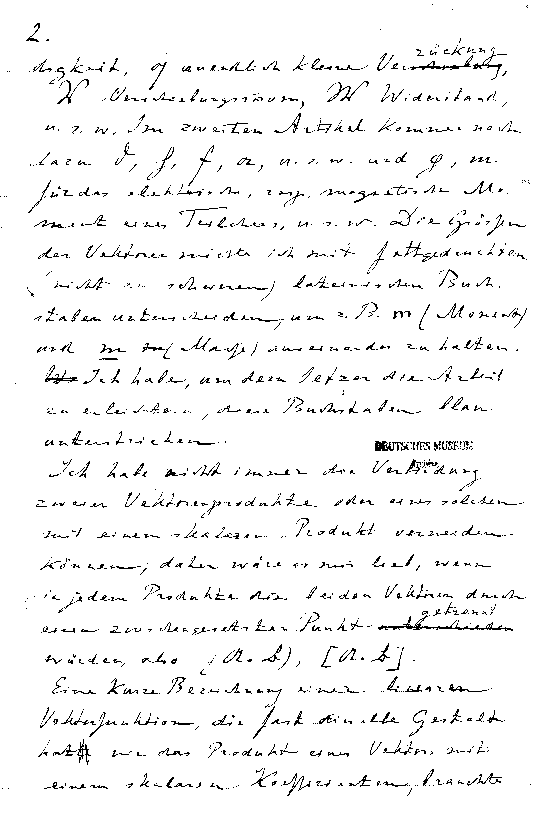 2.
digkeit, of unendlich kleine Verrückung,
W Verschiebungsstrom, W Widerstand,
u. s. w. Im zweiten Artikel kommen noch
dazu f, u. s. w. und m
für das elektrische, resp. magnetische Mo-
ment eines Teilchens, u. s. w. Die Grössen
der Vektoren möchte ich mit fettgedruckten
(nicht zu schweren) lateinischen Buch-
staben unterscheiden, um z. B. m (Moment)
und m (Masse) auseinander zu halten.
Ich habe, um dem Setzer die Arbeit
zu erleichtern, diese Buchstaben blau
unterstrichen.
DEUTSCHES MUSEUM
Ich habe nicht immer die Verbindung
zweier Vektorenprodukte oder eines solchen
mit einem skalaren Produkt vermeiden
können; daher wäre es mir lieb, wenn
in jedem Produkte die beiden Vektoren durch
einen zwischengesetzten Punkt getrennt
würden, also (A.b), [A.b].
Eine kurze Bezeichnung einer linearen
Vektorfunktion, die fast dieselbe Gestalt
hat wie das Produkt eines Vektors mit
einem skalaren Koeffizienten, brauchte